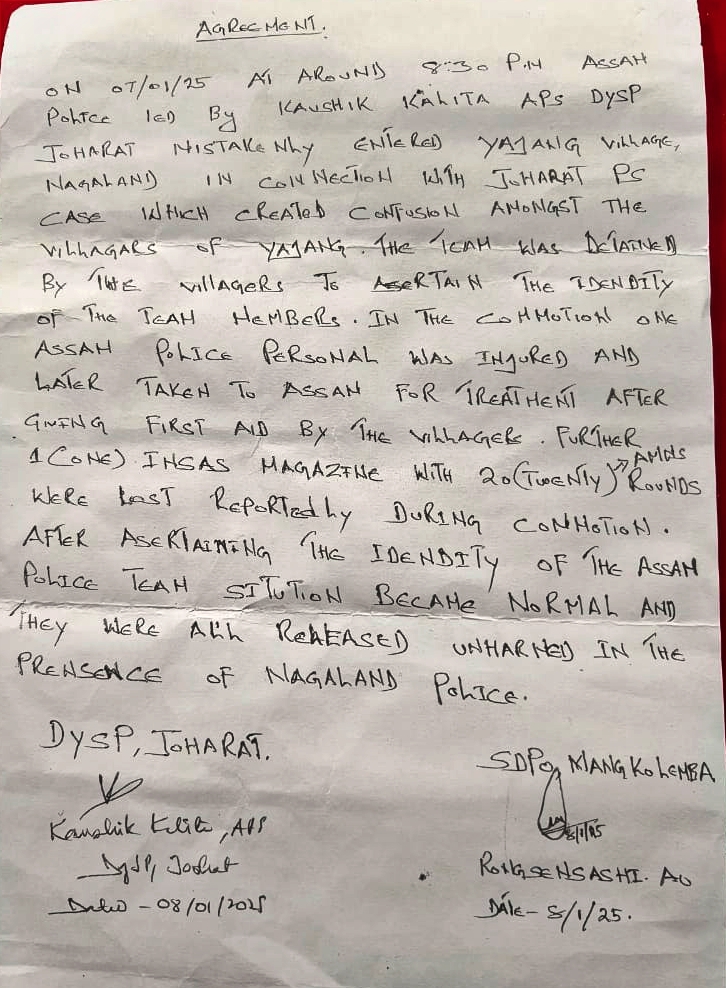 AGREEMENT.
ON 07/01/25 AT AROUND 8:30 P.M ASSAM
POLICE LED By KAUSHIK KALITA APS DYSP
JOHARAT MISTAKENLY ENTERED YAJANG VILLAGE,
NAGALAND IN CONNECTION WITH JOHARAT PS
CASE WHICH CREATED CONFUSION AMONGST THE
VILLAGARS OF YAJANG. THE TEAM WAS DETAINED
By THE VILLAGERS TO ASERTAIN THE IDENDITY
OF THE TEAM MEMBERS. IN THE COMMOTION ONE
ASSAM POLICE PERSONAL WAS INJURED AND
LATER TAKEN TO ASSAM FOR TREATMENT AFTER
GIVING FIRST AID BY THE VILLAGERS. FURTHER
1 (ONE) INSAS MAGAZINE WITH 20 (TWENTY) AMNS ROUNDS
WERE LOST REPORTEDLY DURING COMMOTION.
AFTER ASERTAINING THE IDENDITY OF THE ASSAM
POLICE TEAM SITUTION BECAME NORMAL AND
THEY WERE ALL RELEASED UNHARMED IN THE
PRENSENCE OF NAGALAND POLICE.
DYSP, JOHARAT.
Kaushik Kalita, APS
DySP, Jorhat
Date - 08/01/2025
SDPO, MANGKOLEMBA
8/1/25
RONGSENSASHI. AO
DATE - 8/1/25.